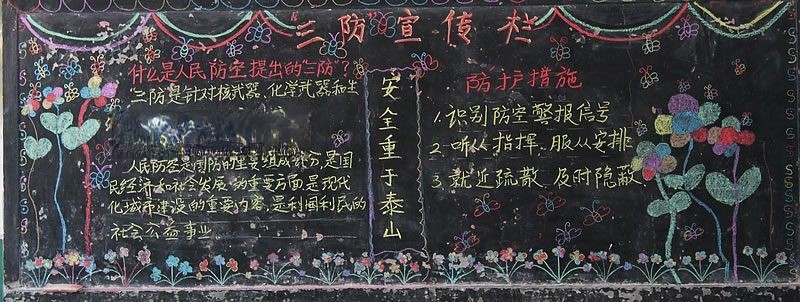 “三防”宣传栏
什么是人民防空提出的“三防”？
“三防”是针对核武器、化学武器和生
人民防空是国防的重要组成部分，是国
民经济和社会发展的重要方面，是现代
化城市建设的重要内容，是利国利民的
社会公益事业
安全重于泰山
防护措施
1. 识别防空警报信号
2. 听从指挥、服从安排
3. 就近疏散、及时隐蔽